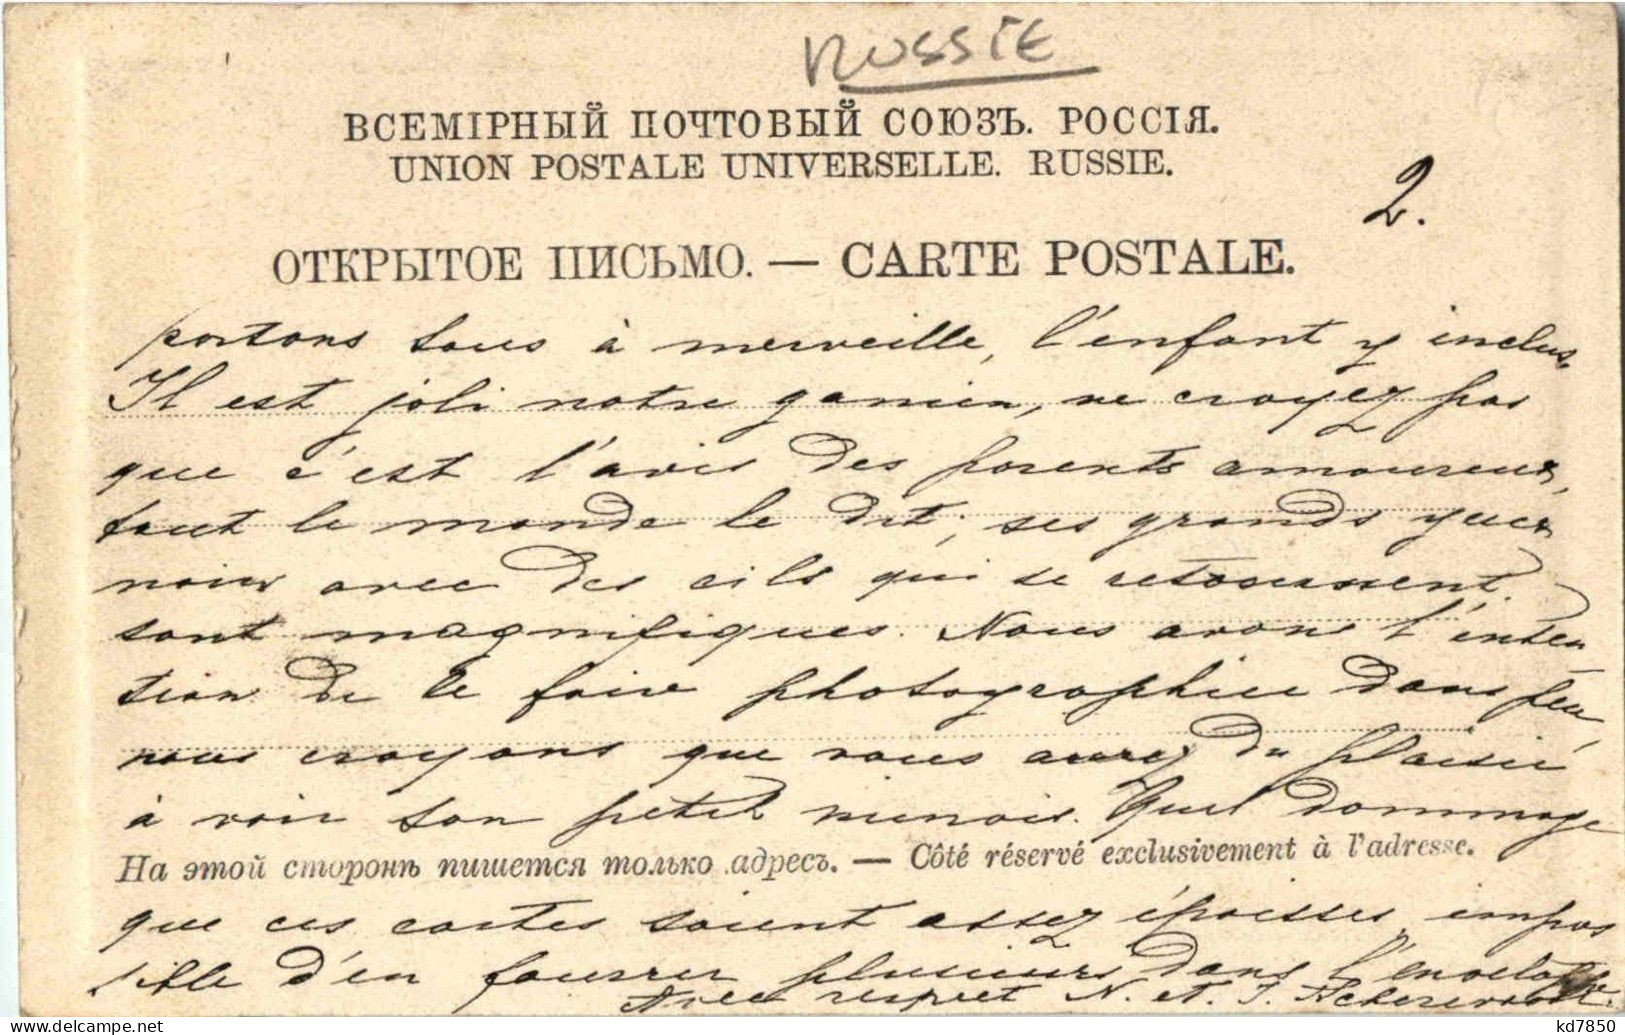 RUSSIE
ВСЕМІРНЫЙ ПОЧТОВЫЙ СОЮЗЪ. РОССІЯ.
UNION POSTALE UNIVERSELLE. RUSSIE.
2.
ОТКРЫТОЕ ПИСЬМО. — CARTE POSTALE.
portons tous à merveille, l'enfant y inclus.
Il est joli notre gamin, ne croyez pas
que c'est l'avis des parents amoureux,
tout le monde le dit; ses grands yeux
noirs avec des cils qui se retroussent
sont magnifiques. Nous avons l'inten
tion de le faire photographier dans peu,
nous croyons que vous aurez du plaisir
à voir son petit minois. Quel dommage
На этой сторонѣ пишется только адресъ. — Côté réservé exclusivement à l'adresse.
que ces cartes soient assez épaisses, impos
sible d'en fourrer plusieurs dans l'enveloppe.
Avec respect N. et J.
kd7850